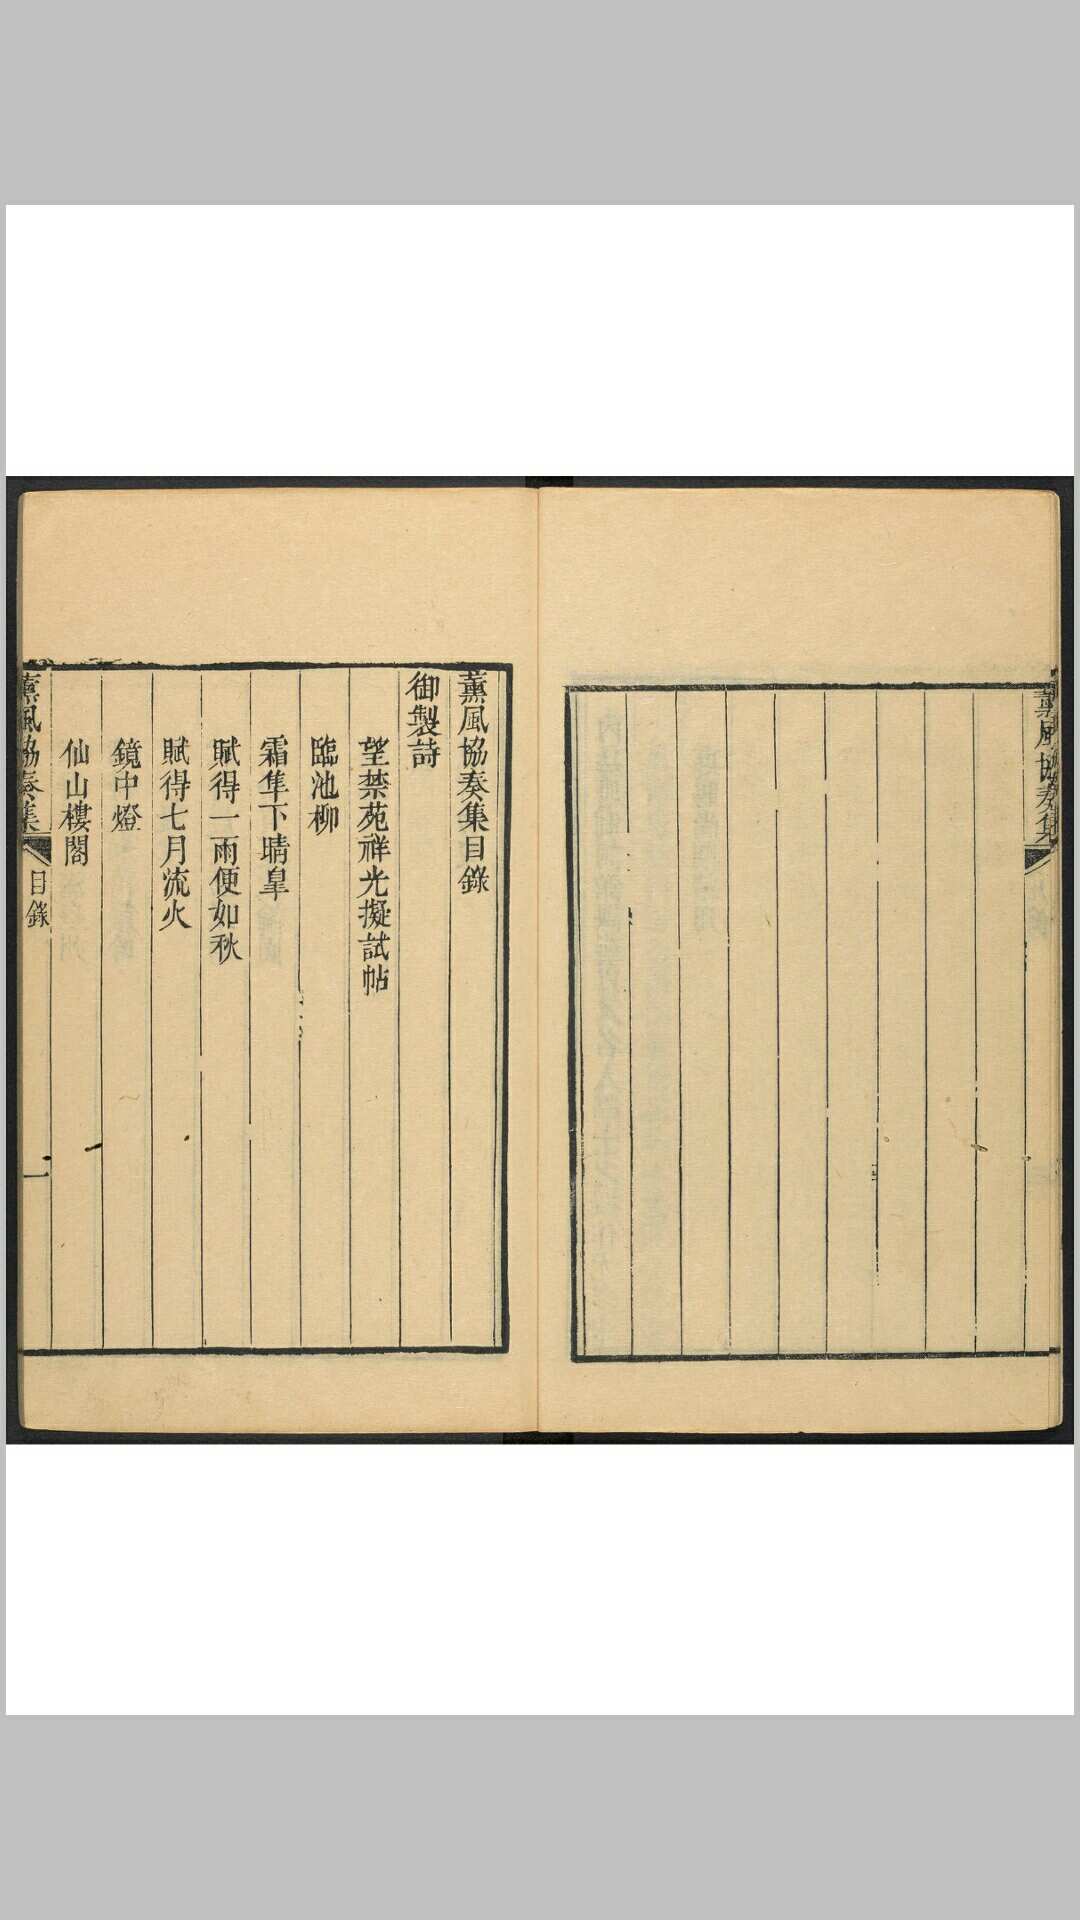 薰風協奏集
薰風協奏集目錄
御製詩
望禁苑祥光擬試帖
臨池柳
霜隼下晴臯
賦得一雨便如秋
賦得七月流火
鏡中燈
仙山樓閣
薰風協奏集
目錄
一